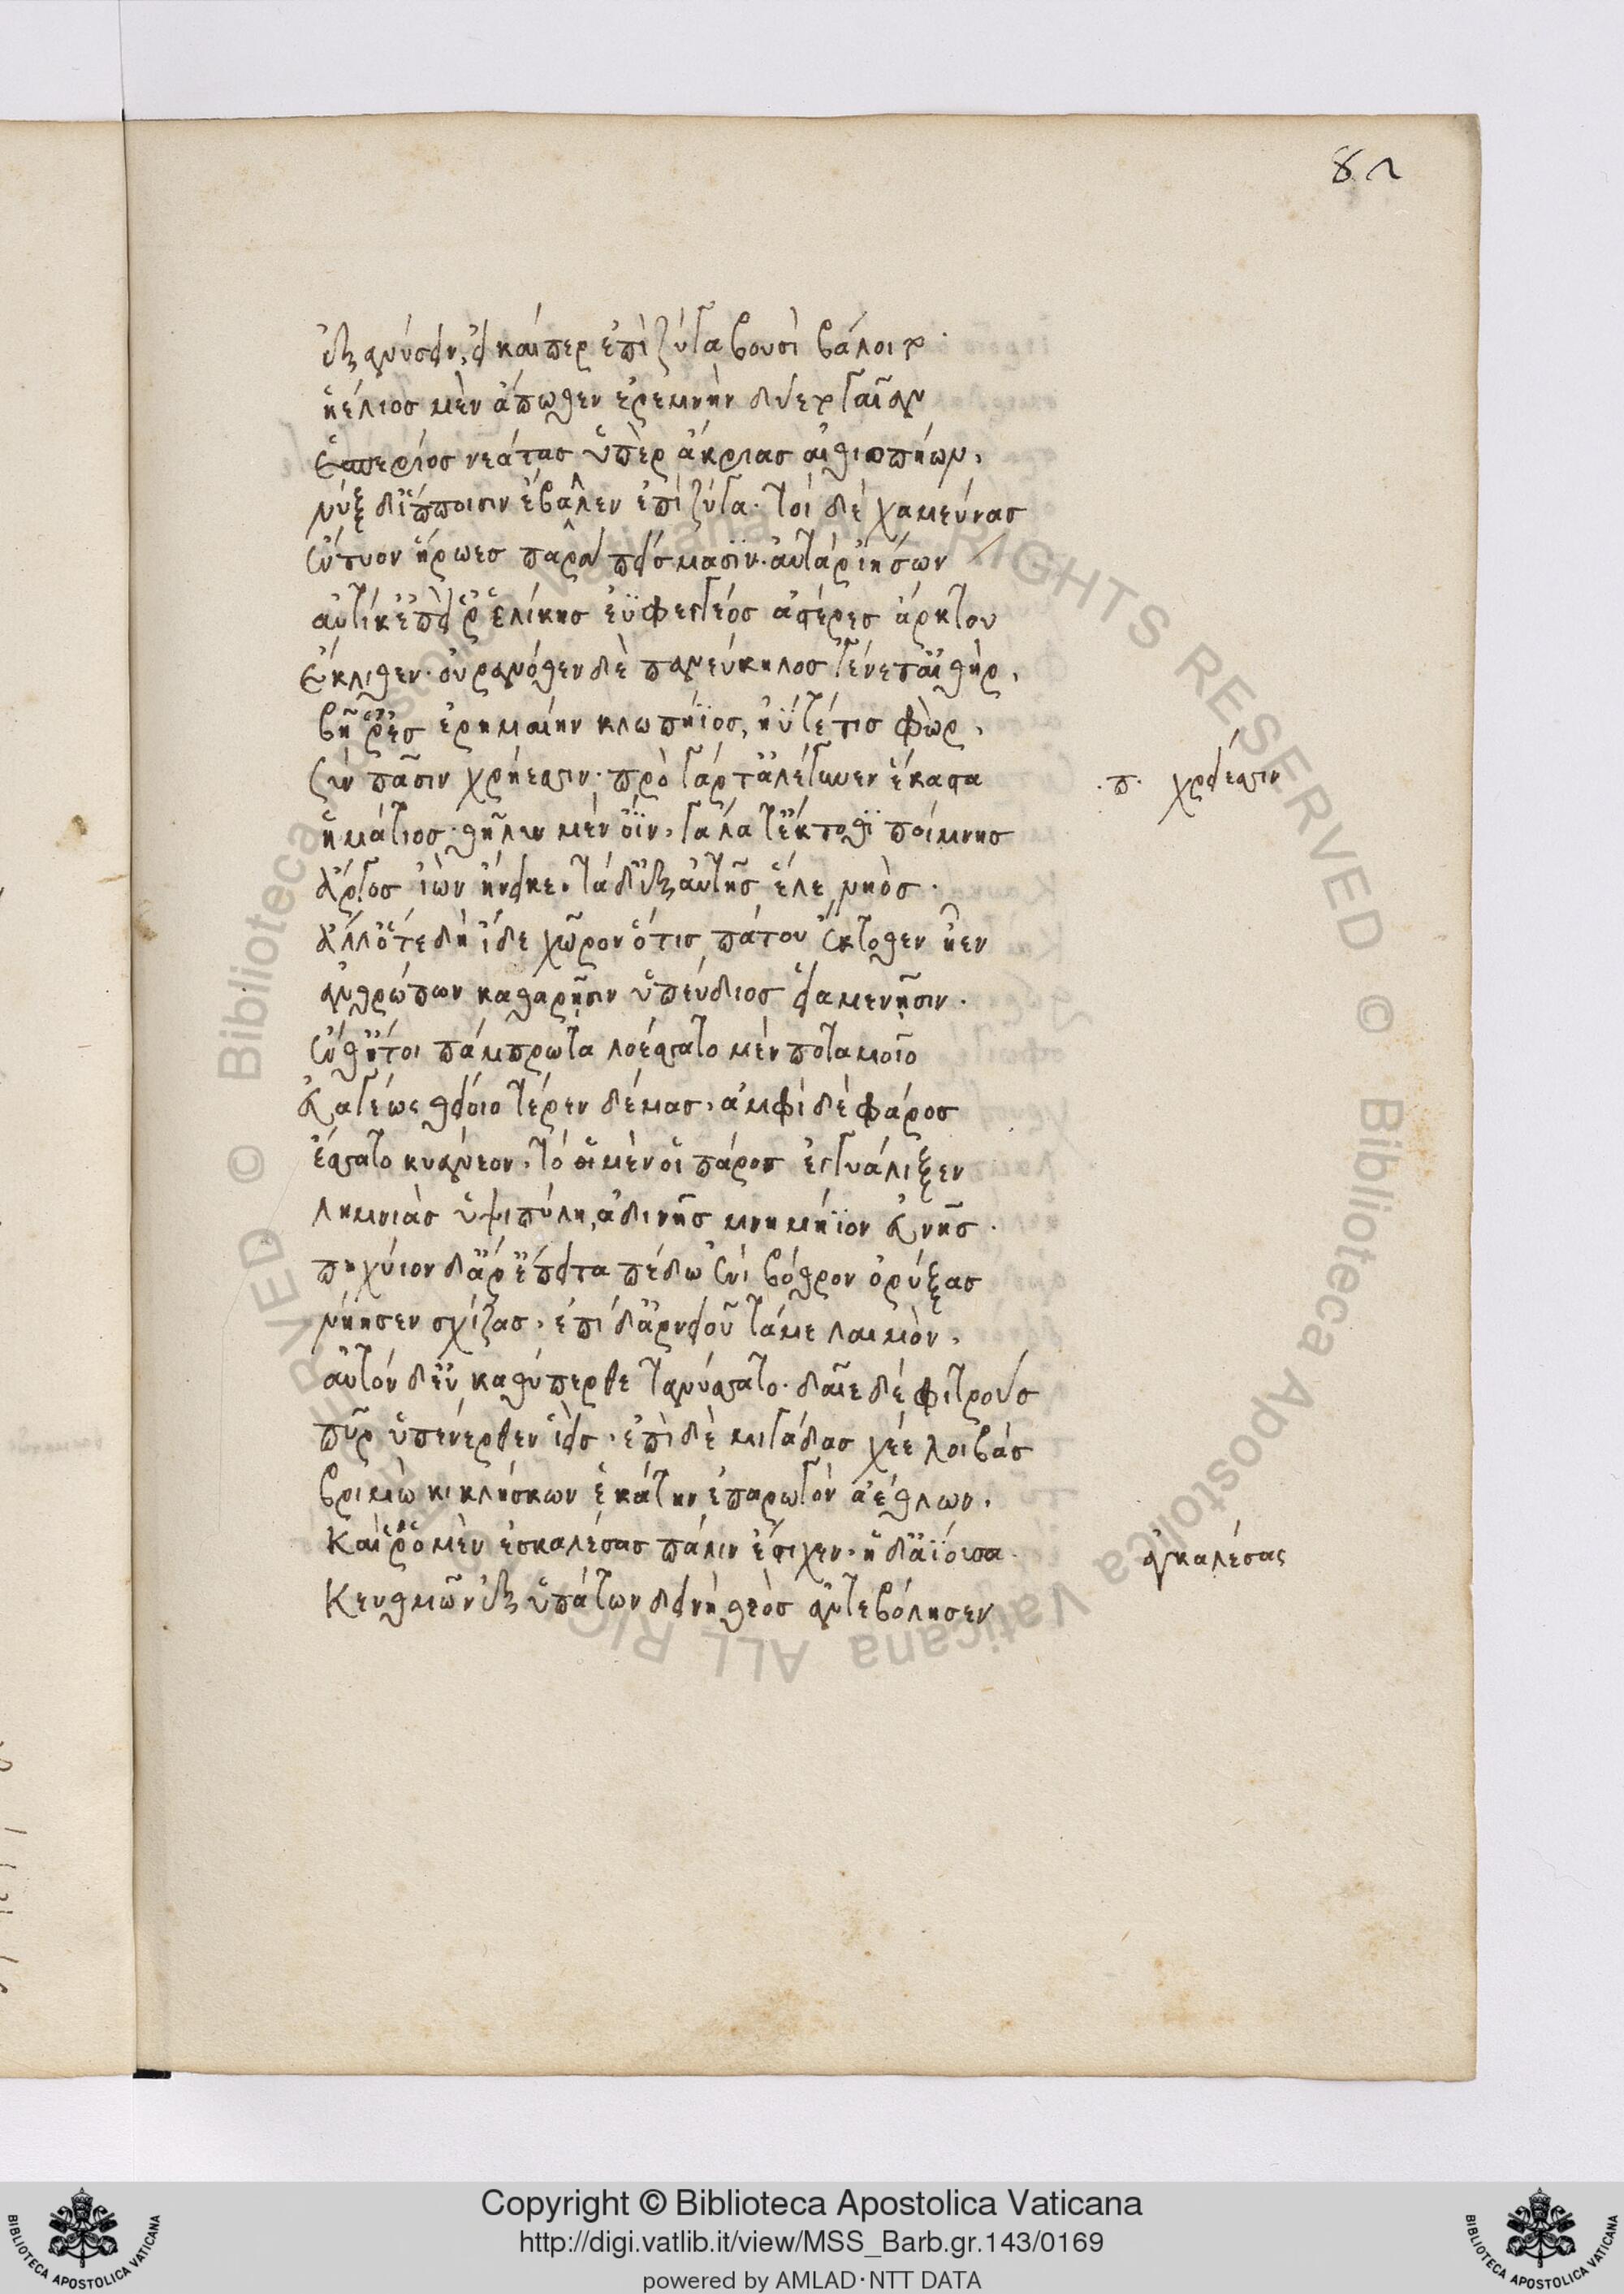 82
ἐξανύσειν, εἰ καί περ ἐπὶ ζύγα βουσὶ βάλοιτο·
ἠέλιος μὲν ἄπωθεν ἐρεμνὴν δύετο γαῖαν
ἑσπερίος νεάτας ὑπὲρ ἄκριας αἰθιοπήων,
νὺξ δ' ἵπποισιν ἔβαλεν ἐπὶ ζύγα· τοὶ δὲ χαμεύνας
ἔντυον ἥρωες παρὰ πείσμασιν· αὐτὰρ ἰήσων
αὐτίκ' ἐπεί ῥ' ἑλίκης εὐφεγγέος ἀστέρες ἄρκτου
ἔκλιθεν· οὐρανόθεν δὲ πανεύκηλος γένετ' αἰθήρ,
βῆ ῥ' ἐς ἐρημαίην κλωπήϊος, ἠΰτέ τις φὼρ,
σὺν πᾶσιν χρήεσσιν· πρὸ γάρ τ' ἀλέγυνεν ἕκαστα
.π. χρείεσσιν
ἠμάτιος· θῆλυν μὲν ὄϊν, γάλα τ' ἔκτοθϊ ποίμνης
ἄργος ἰὼν ἤνεικε. τὰ δ' ἐξ αὐτῆς ἕλε νηὸς·
ἀλλ' ὅτε δὴ ἴδε χῶρον ὅτις πάτου ἔκτοθεν ἦεν
ἀνθρώπων καθαρῇσιν ὑπεύδιος εἱαμενῇσιν.
ἔνθ' ἤτοι πάμπρωτα λοέσσατο μὲν ποταμοῖο
εὐαγέως θείοιο τέρεν δέμας, ἀμφὶ δὲ φάρος
ἕσσατο κυάνεον, τό οἱ μέν οἱ πάρος ἐγγυάλιξεν
λημνιὰς ὑψιπύλη, ἀδινῆς μνημήϊον εὐνῆς.
πηχύιον δ' ἄρ' ἔπειτα πέδω ἔνι βόθρον ὀρύξας
νήησεν σχίζας, ἐπὶ δ' ἀρνειοῦ τάμε λαιμὸν,
αὐτόν δ' εὖ καθύπερθε τανύσσατο· δαῖε δὲ φιτρούς
πῦρ ὑπένερθεν ἱεὶς, ἐπὶ δὲ μιγάδας χέε λοιβάς
βριμὼ κικλήσκων ἑκάτην ἐπαρωγὸν ἀέθλων.
Καὶ ῥ' ὁ μὲν ἐσκαλέσας πάλιν ἔστιχεν· ἡ δ' ἀϊόισα
ἀγκαλέσας
Κευθμῶν ἐξ ὑπάτων δεινὴ θεὸς ἀντεβόλησεν
Copyright © Biblioteca Apostolica Vaticana
http://digi.vatlib.it/view/MSS_Barb.gr.143/0169
powered by AMLAD·NTT DATA
BIBLIOTECA APOSTOLICA VATICANA
BIBLIOTECA APOSTOLICA VATICANA
Biblioteca Apostolica Vaticana ALL RIGHTS RESERVED ©
Biblioteca Apostolica Vaticana ALL RIGHTS RESERVED ©